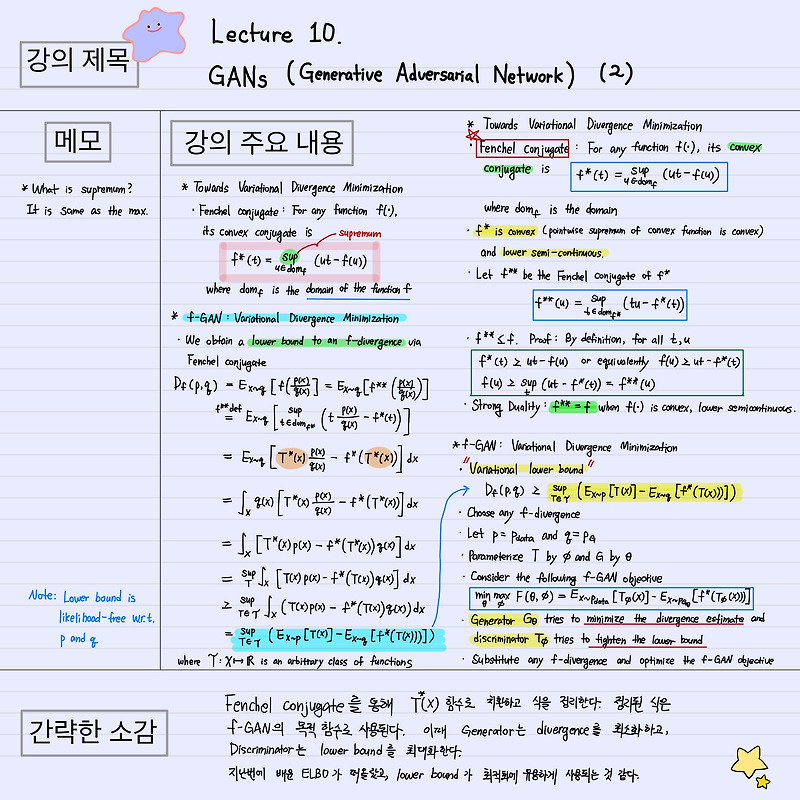 강의 제목
Lecture 10.
GANs (Generative Adversarial Network) (2)
메모
* What is supremum?
It is same as the max.
Note: Lower bound is
likelihood-free w.r.t.
p and q
강의 주요 내용
* Towards Variational Divergence Minimization
· Fenchel conjugate : For any function f(·),
its convex conjugate is
supremum
f*(t) = sup_{u∈dom_f} (ut-f(u))
where dom_f is the domain of the function f
* f-GAN : Variational Divergence Minimization
· We obtain a lower bound to an f-divergence via
Fenchel conjugate
D_f(p,q) = E_{x~q}[f(p(x)/q(x))] = E_{x~q}[f**(p(x)/q(x))]
f** def = E_{x~q}[sup_{t∈dom_{f*}} (t p(x)/q(x) - f*(t))]
= E_{x~q}[T*(x) p(x)/q(x) - f*(T*(x))] dx
= ∫_X q(x)[T*(x) p(x)/q(x) - f*(T*(x))] dx
= ∫_X [T*(x)p(x) - f*(T*(x))q(x)] dx
= sup_T ∫_X [T(x)p(x) - f*(T(x))q(x)] dx
≥ sup_{T∈𝒯} ∫_X (T(x)p(x) - f*(T(x))q(x)) dx
= sup_{T∈𝒯} (E_{x~p}[T(x)] - E_{x~q}[f*(T(x))])
where 𝒯 : X ↦ ℝ is an arbitrary class of functions
* Towards Variational Divergence Minimization
· Fenchel conjugate : For any function f(·), its convex
conjugate is f*(t) = sup_{u∈dom_f} (ut-f(u))
where dom_f is the domain
· f* is convex (pointwise supremum of convex function is convex)
and lower semi-continuous.
· Let f** be the Fenchel conjugate of f*
f**(u) = sup_{t∈dom_{f*}} (tu-f*(t))
· f** ≤ f. Proof : By definition, for all t, u
f*(t) ≥ ut-f(u) or equivalently f(u) ≥ ut-f*(t)
f(u) ≥ sup_t (ut-f*(t)) = f**(u)
· Strong Duality : f** = f when f(·) is convex, lower semicontinuous.
* f-GAN : Variational Divergence Minimization
· "Variational lower bound"
D_f(p,q) ≥ sup_{T∈𝒯} (E_{x~p}[T(x)] - E_{x~q}[f*(T(x))])
· Choose any f-divergence
· Let p = p_data and q = p_G
· Parameterize T by ϕ and G by θ
· Consider the following f-GAN objective
min_θ max_ϕ F(θ, ϕ) = E_{x~p_data}[T_ϕ(x)] - E_{x~p_{Gθ}}[f*(T_ϕ(x))]
· Generator G_θ tries to minimize the divergence estimate and
discriminator T_ϕ tries to tighten the lower bound
· Substitute any f-divergence and optimize the f-GAN objective
간략한 소감
Fenchel conjugate를 통해 T*(x) 함수로 치환하고 식을 정리한다. 정리된 식은
f-GAN의 목적 함수로 사용된다. 이때 Generator는 divergence를 최소화하고,
Discriminator는 lower bound를 최대화한다.
지난번에 배운 ELBO가 떠올랐고, lower bound가 최적화에 유용하게 사용되는 것 같다.